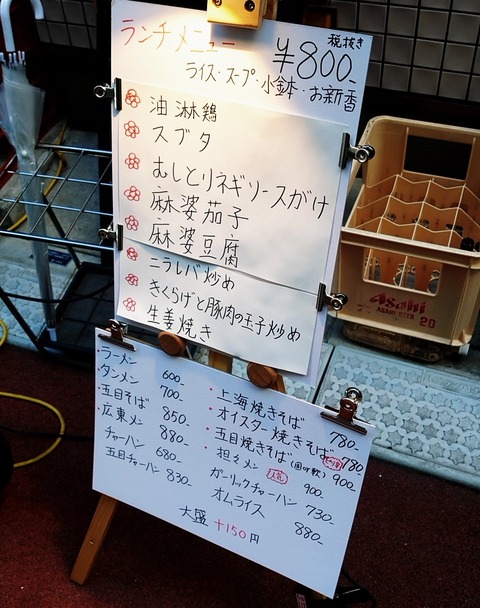 ランチメニュー
税抜き
¥800-
ライス・スープ・小鉢・お新香
油淋鶏
スブタ
むしとりネギソースがけ
麻婆茄子
麻婆豆腐
ニラレバ炒め
きくらげと豚肉の玉子炒め
生姜焼き
・ラーメン 600-
・タンメン 700-
・五目そば 850-
・広東メン 880-
チャーハン 680-
五目チャーハン 830-
・上海焼きそば 780-
・オイスター焼きそば 780
・五目焼きそば 900-
・担々メン 人気 900-
ガーリックチャーハン 730-
オムライス 880-
大盛 +150円
Asahi
ASAHI BEER 20